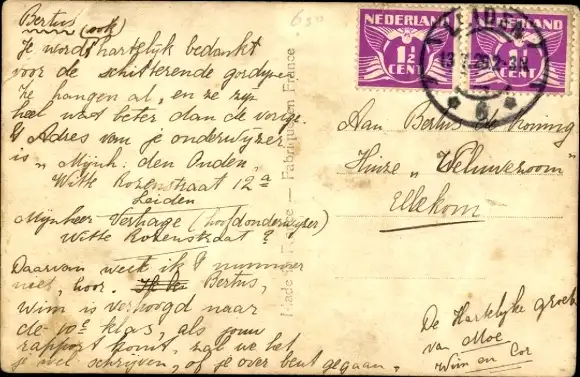 Bertus (ook)
Je wordt hartelijk bedankt
voor de schitterende gordijnen
Ze hangen al, en ze zijn
heel wat beter dan de vorige.
't Adres van je onderwijzer
is „Mijnh. den Ouden,
Witte Rozenstraat 12a
Leiden
Mijnheer Verhage (hoofdonderwijzer)
Witte Rozenstraat ?
Daarvan weet ik 't nummer
niet, hoor. Bertus,
Wim is verhoogd naar
de 10e klas, als jouw
rapport komt, zal we het
je wel schrijven, of je over bent gegaan.
Made in France — Fabriqué en France
NEDERLAND
1½
CENT
NEDERLAND
1½
CENT
LEIDEN
6
Aan Bertus de Koning
Huize „Veluwezoom"
Ellekom
De Hartelijke groet
van Moe
Wim en Cor